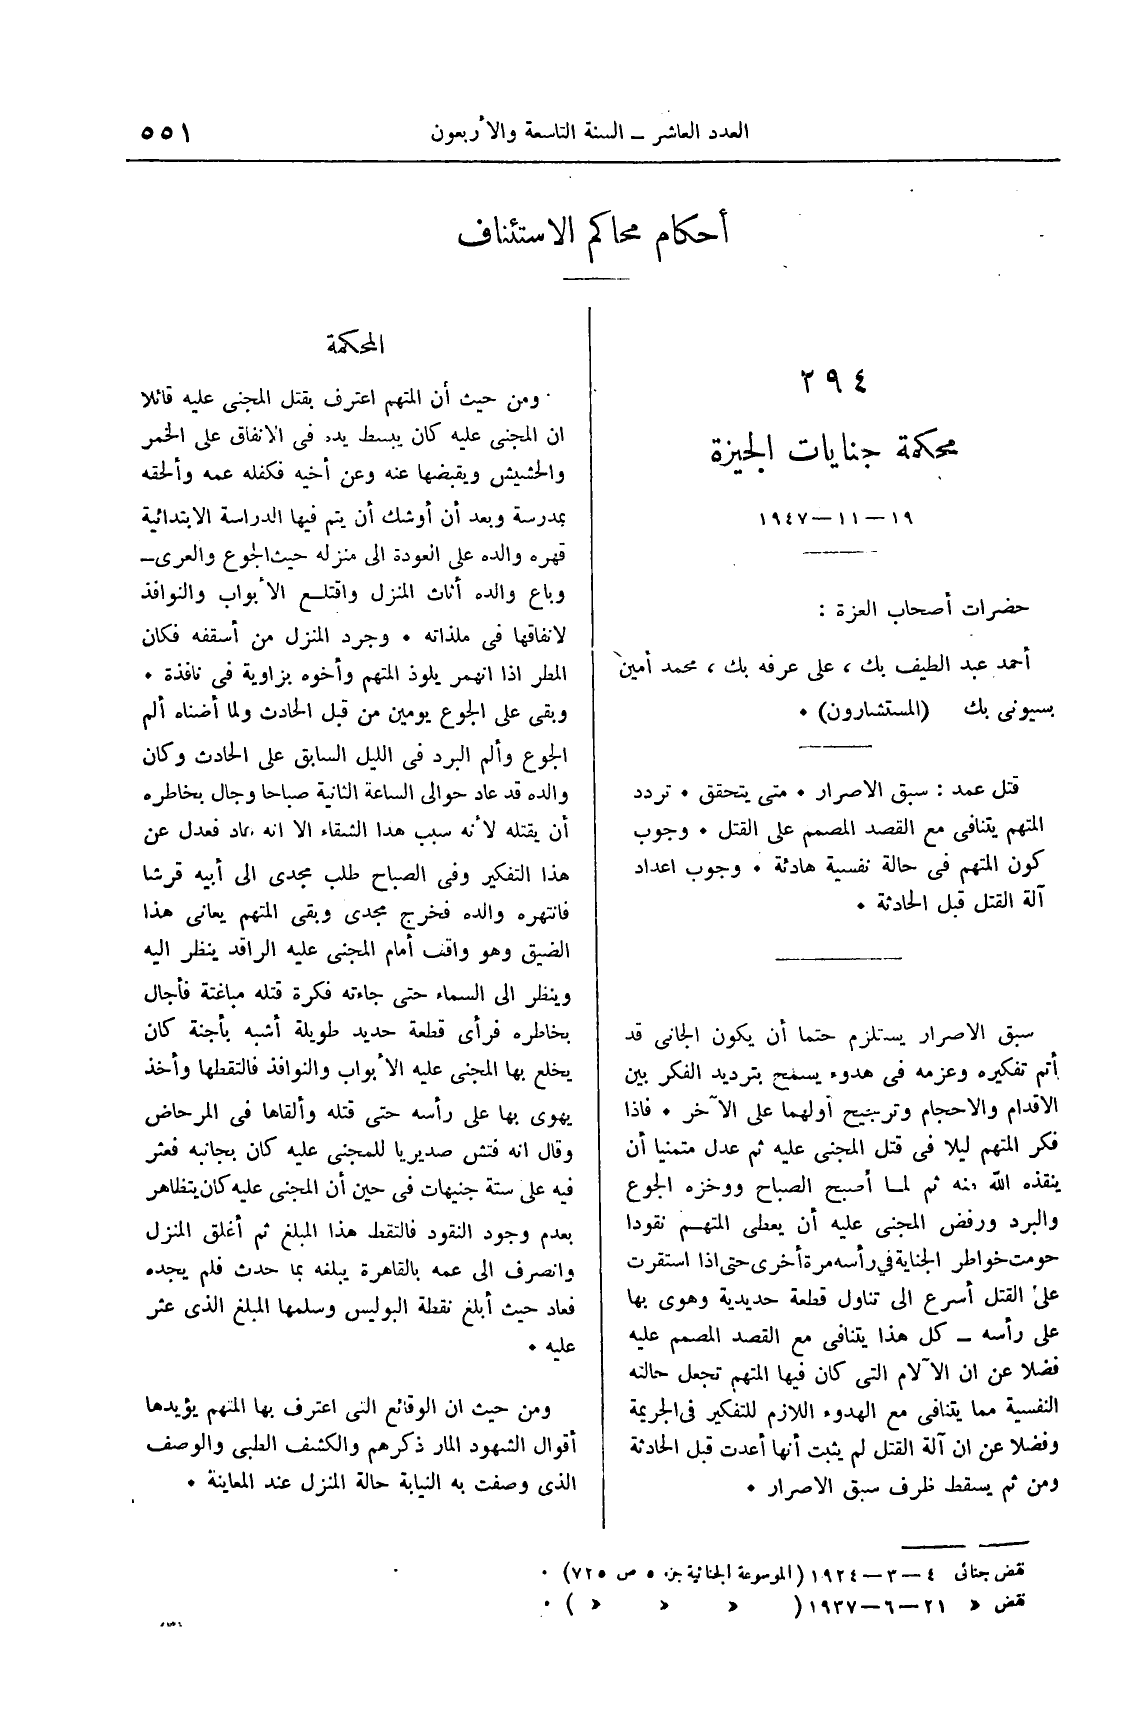 العدد العاشر – السنة التاسعة والأربعون
٥٥١
أحكام محاكم الاستئناف
٢٩٤
محكمة جنايات الجيزة
١٩–١١–١٩٤٧
حضرات أصحاب العزة :
أحمد عبد الطيف بك ، على عرفه بك ، محمد أمين
بسيونى بك (المستشارون) •
قتل عمد : سبق الاصرار • متى يتحقق • تردد
المتهم يتنافى مع القصد المصمم على القتل • وجوب
كون المتهم فى حالة نفسية هادئة • وجوب اعداد
آلة القتل قبل الحادثة •
سبق الاصرار يستلزم حتما أن يكون الجانى قد
أتم تفكيره وعزمه فى هدوء يسمح بترديد الفكر بين
الاقدام والاحجام وترجيح أولهما على الآخر • فاذا
فكر المتهم ليلا فى قتل المجنى عليه ثم عدل متمنيا أن
ينقذه الله منه ثم لما أصبح الصباح ووخزه الجوع
والبرد ورفض المجنى عليه أن يعطى المتهم نقودا
حومت خواطر الجناية فى رأسه مرة أخرى حتى اذا استقرت
على القتل أسرع الى تناول قطعة حديدية وهوى بها
على رأسه – كل هذا يتنافى مع القصد المصمم عليه
فضلا عن ان الآلام التى كان فيها المتهم تجعل حالته
النفسية مما يتنافى مع الهدوء اللازم للتفكير فى الجريمة
وفضلا عن ان آلة القتل لم يثبت أنها أعدت قبل الحادثة
ومن ثم يسقط ظرف سبق الاصرار •
المحكمة
ومن حيث أن المتهم اعترف بقتل المجنى عليه قائلا
ان المجنى عليه كان يبسط يده فى الانفاق على الخمر
والحشيش ويقبضها عنه وعن أخيه فكفله عمه وألحقه
بمدرسة وبعد أن أوشك أن يتم فيها الدراسة الابتدائية
قهره والده على العودة الى منزله حيث الجوع والعرى–
وباع والده أثاث المنزل واقتلع الأبواب والنوافذ
لانفاقها فى ملذاته • وجرد المنزل من أسقفه فكان
المطر اذا انهمر يلوذ المتهم وأخوه بزاوية فى نافذة •
وبقى على الجوع يومين من قبل الحادث ولما أضناه ألم
الجوع وألم البرد فى الليل السابق على الحادث وكان
والده قد عاد حوالى الساعة الثانية صباحا وجال بخاطره
أن يقتله لأنه سبب هذا الشقاء الا انه عاد فعدل عن
هذا التفكير وفى الصباح طلب مجدى الى أبيه قرشا
فانتهره والده فخرج مجدى وبقى المتهم يعانى هذا
الضيق وهو واقف أمام المجنى عليه الراقد ينظر اليه
وينظر الى السماء حتى جاءته فكرة قتله مباغتة فأجال
بخاطره فرأى قطعة حديد طويلة أشبه بأجنة كان
يخلع بها المجنى عليه الأبواب والنوافذ فالتقطها وأخذ
يهوى بها على رأسه حتى قتله وألقاها فى المرحاض
وقال انه فتش صديريا للمجنى عليه كان بجانبه فعثر
فيه على ستة جنيهات فى حين أن المجنى عليه كان يتظاهر
بعدم وجود النقود فالتقط هذا المبلغ ثم أغلق المنزل
وانصرف الى عمه بالقاهرة يبلغه بما حدث فلم يجده
فعاد حيث أبلغ نقطة البوليس وسلمها المبلغ الذى عثر
عليه •
ومن حيث ان الوقائع التى اعترف بها المتهم يؤيدها
أقوال الشهود المار ذكرهم والكشف الطبى والوصف
الذى وصفت به النيابة حالة المنزل عند المعاينة •
نقض جنائى ٤–٣–١٩٢٤ (الموسوعة الجنائية جزء ٥ ص ٧٢٥) •
نقض « ٢١–٦–١٩٣٧ ( « « « ) •